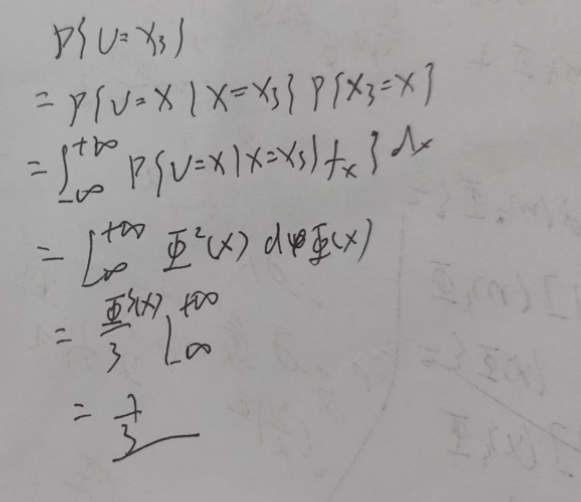 P{U=X₃}
= P{U=X | X=X₃} P{X₃=X}
= ∫₋∞⁺∞ P{U=X|X=X₃} fₓ} dx
= ∫₋∞⁺∞ Φ²(x) dΦ(x)
= Φ³(x)/3 |₋∞⁺∞
= 1/3